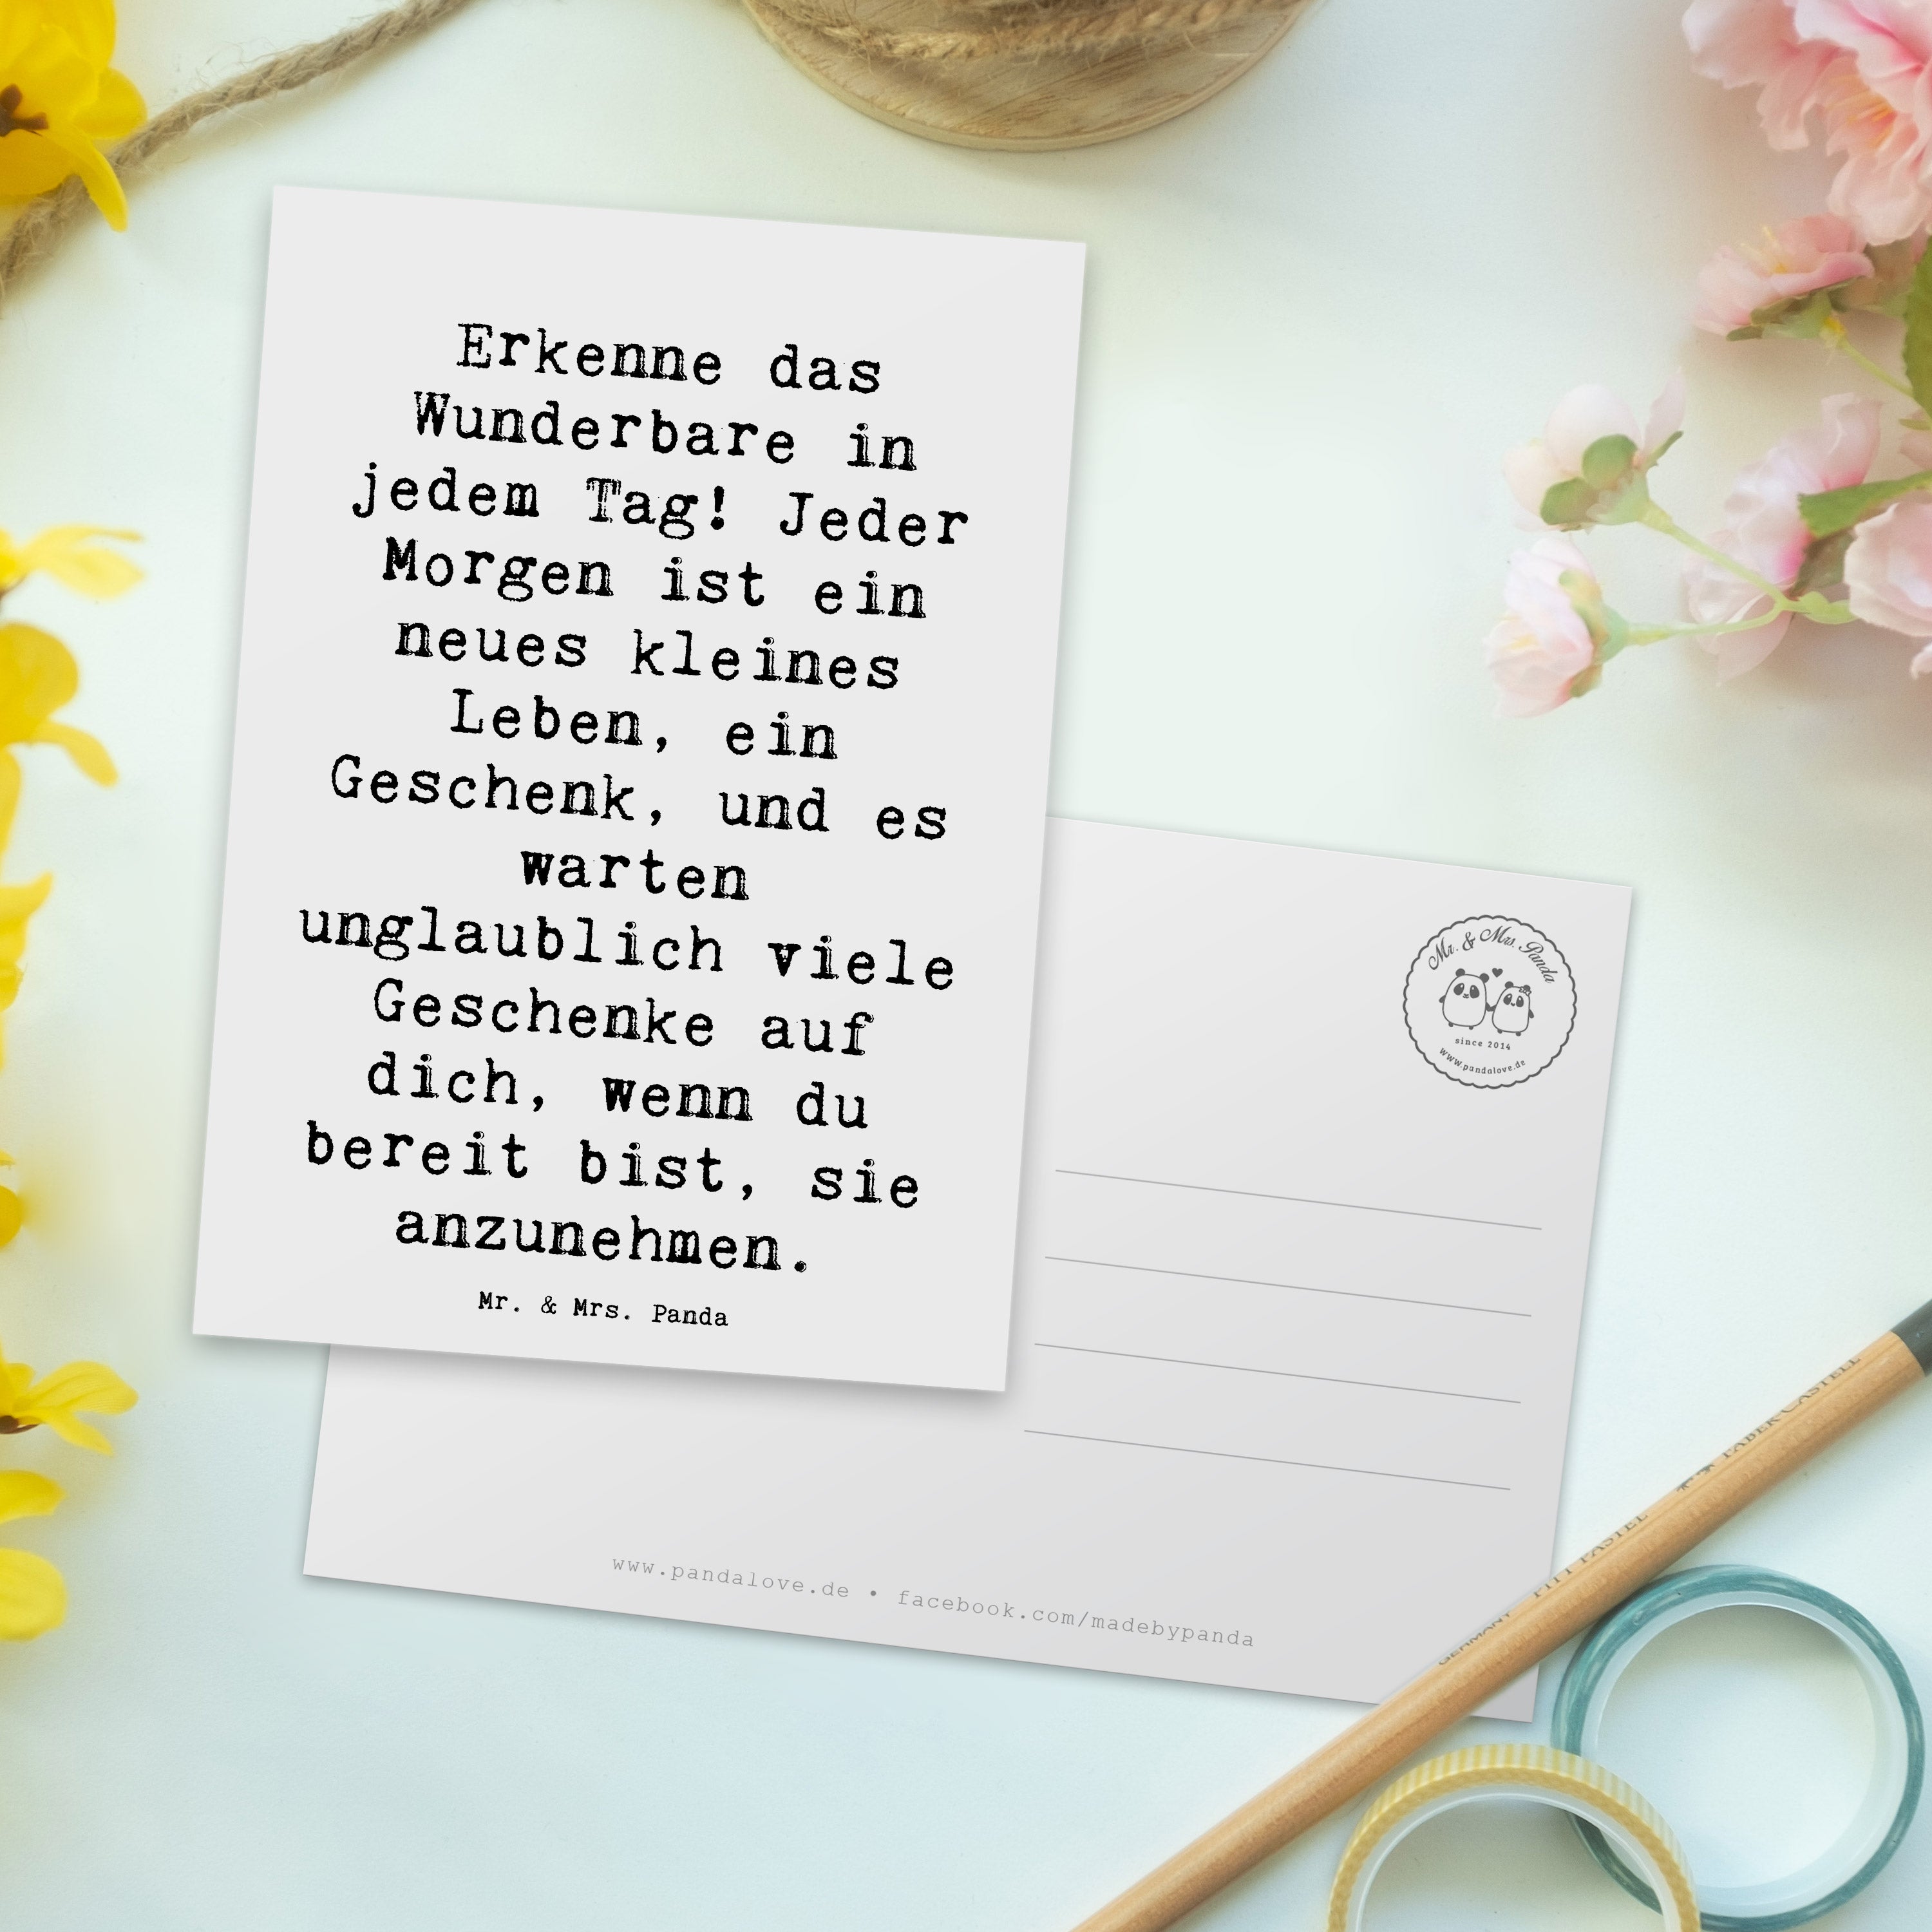 Erkenne das
Wunderbare in
jedem Tag! Jeder
Morgen ist ein
neues kleines
Leben, ein
Geschenk, und es
warten
unglaublich viele
Geschenke auf
dich, wenn du
bereit bist, sie
anzunehmen.
Mr. & Mrs. Panda
Mr. & Mrs. Panda
since 2014
www.pandalove.de
www.pandalove.de • facebook.com/madebypanda
GERMANY PITT PASTEL FABER-CASTELL